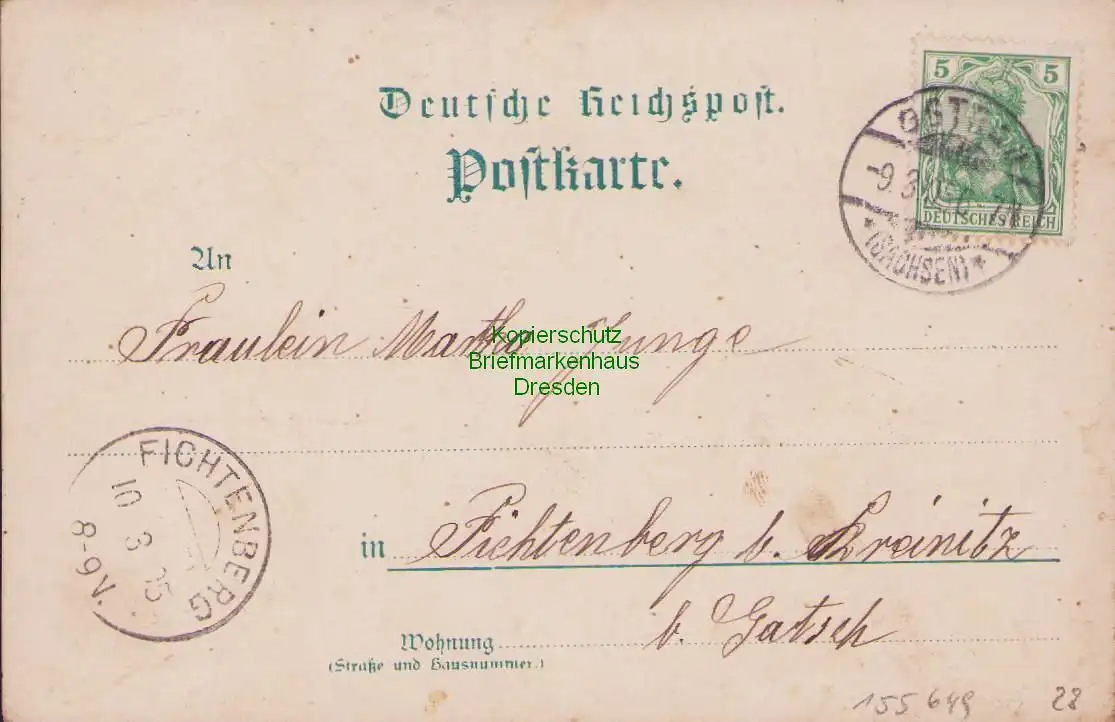 Deutsche Reichspost.
Postkarte.
5 5
DEUTSCHES REICH
-9.3.
*(SACHSEN)*
An
Fräulein Martha Junge
Kopierschutz
Briefmarkenhaus
Dresden
FICHTENBERG
10 3 05
8-9V.
in Fichtenberg b. Kreinitz
b. Gatsch
Wohnung
(Straße und Hausnummer.)
155649 28